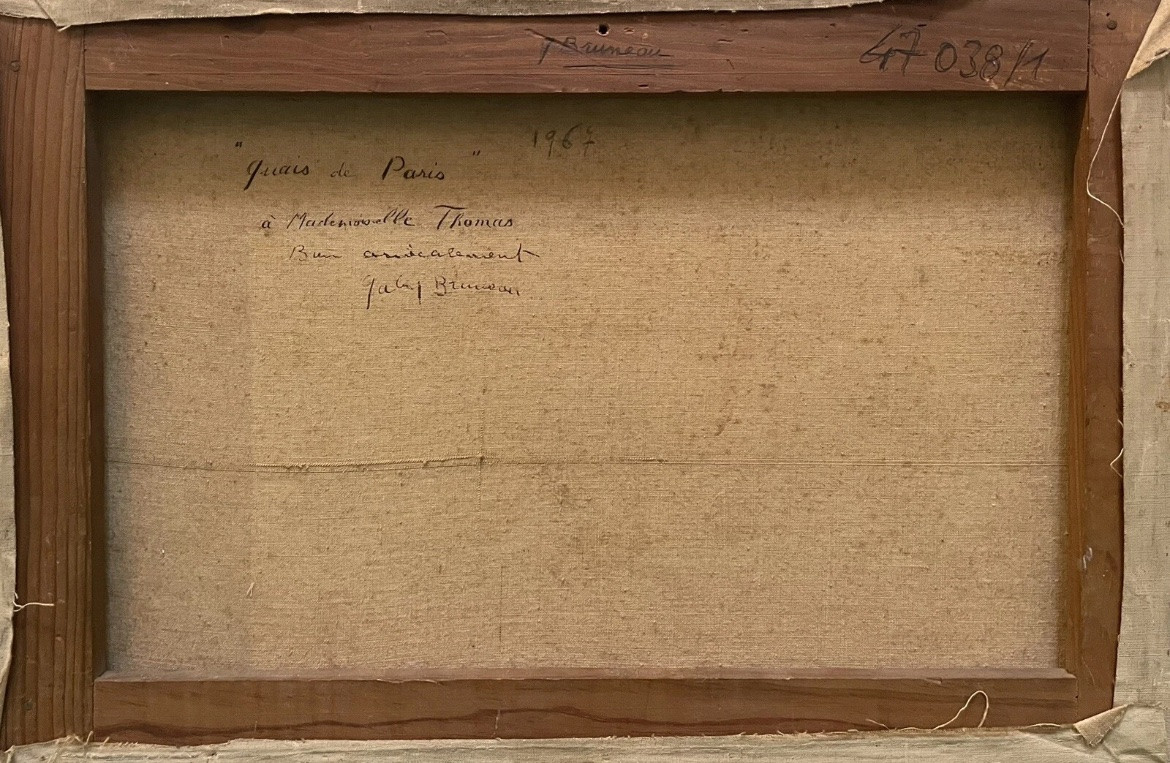 Bruneau
47 038/1
1967
"Quais de Paris"
à Mademoiselle Thomas
Bien amicalement
Gaby Bruneau